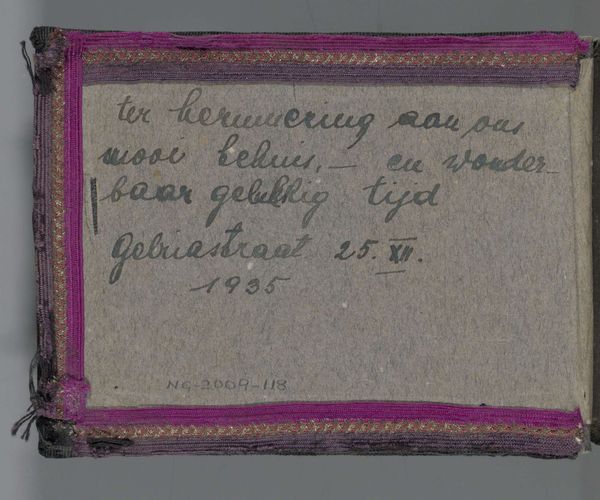 ter herinnering aan ons
mooi behuis, — en wonder-
baar gelukkig tijd
Gebriastraat 25. XII.
1935
NG-2009-118